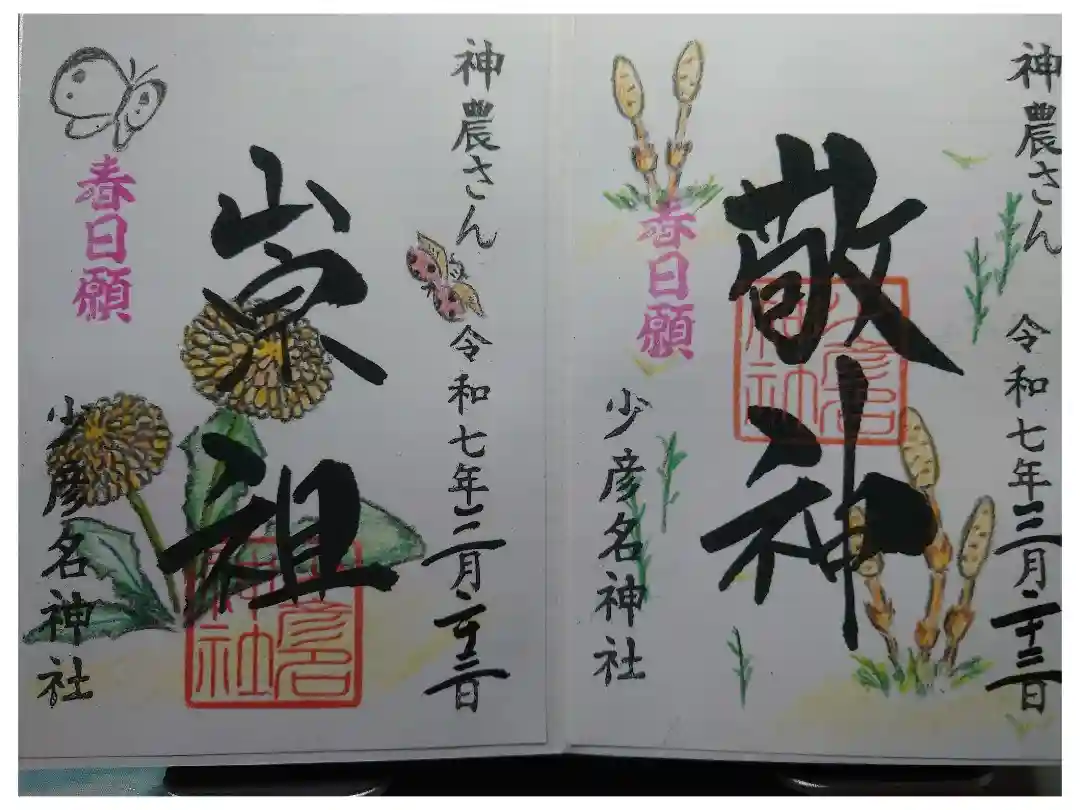 神農さん 令和七年三月二十三日
敬神
春日願
少彦名神社
少彦名
神社
神農さん 令和七年三月二十三日
崇祖
春日願
少彦名神社
少彦名
神社